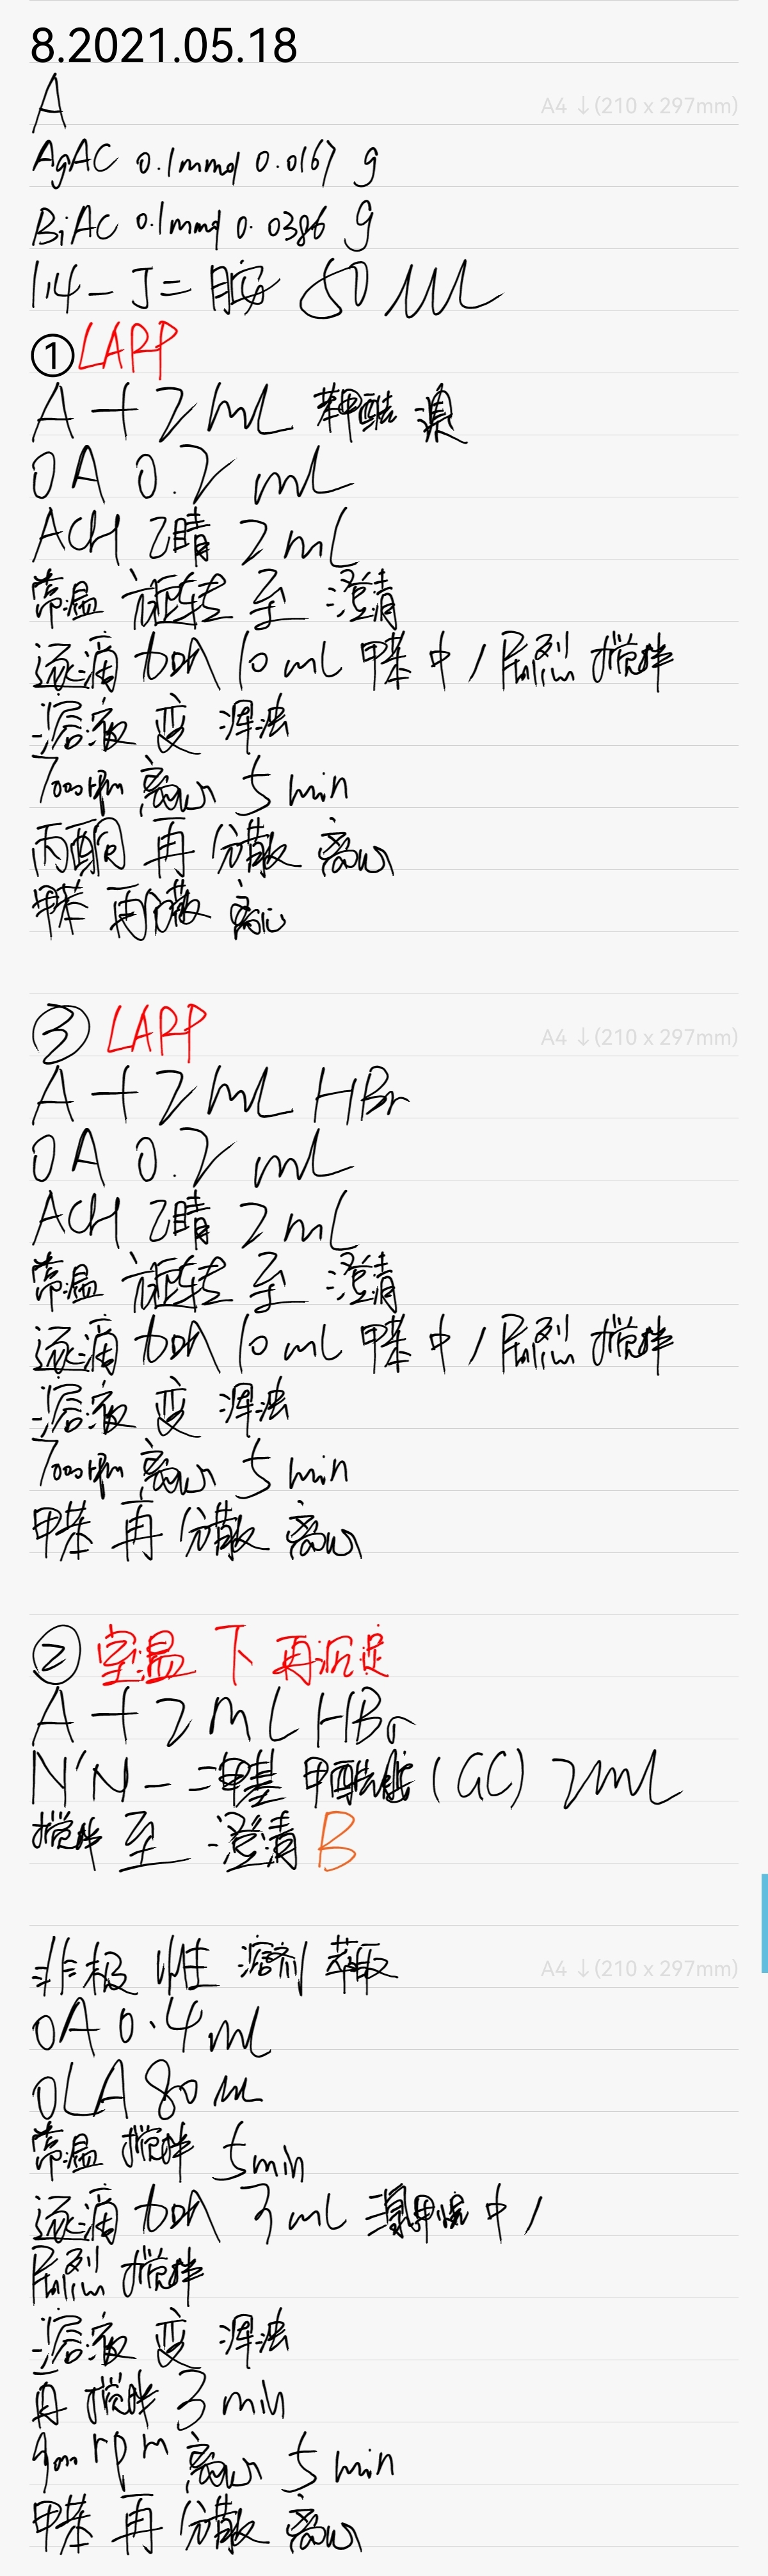 8.2021.05.18
A
A4 ↓(210 x 297mm)
AgAC 0.1mmol 0.0167 g
BiAC 0.1mmol 0.0386 g
1,4-丁二胺 50 uL
①LARP
A+2mL 苯甲酰溴
OA 0.2 mL
ACH 乙腈 2mL
常温 旋转至 澄清
逐滴 加入 10 mL 甲苯中,剧烈 搅拌
溶液变 浑浊
7000rpm 离心 5 min
丙酮 再分散 离心
甲苯 再分散 离心
③ LARP
A4 ↓(210 x 297mm)
A+2mL HBr
OA 0.2 mL
ACH 乙腈 2mL
常温 旋转至 澄清
逐滴 加入 10 mL 甲苯中,剧烈 搅拌
溶液变 浑浊
7000rpm 离心 5 min
甲苯 再分散 离心
② 室温下 再沉淀
A+2mL HBr
N'N-二甲基甲酰胺(GC) 2mL
搅拌至 澄清 B
非极性 溶剂 萃取
A4 ↓(210 x 297mm)
OA 0.4mL
OLA 80 uL
常温 搅拌 5min
逐滴 加入 3 mL 中,
剧烈 搅拌
溶液变 浑浊
再 搅拌 3 min
rpm 离心 5 min
甲苯 再分散 离心